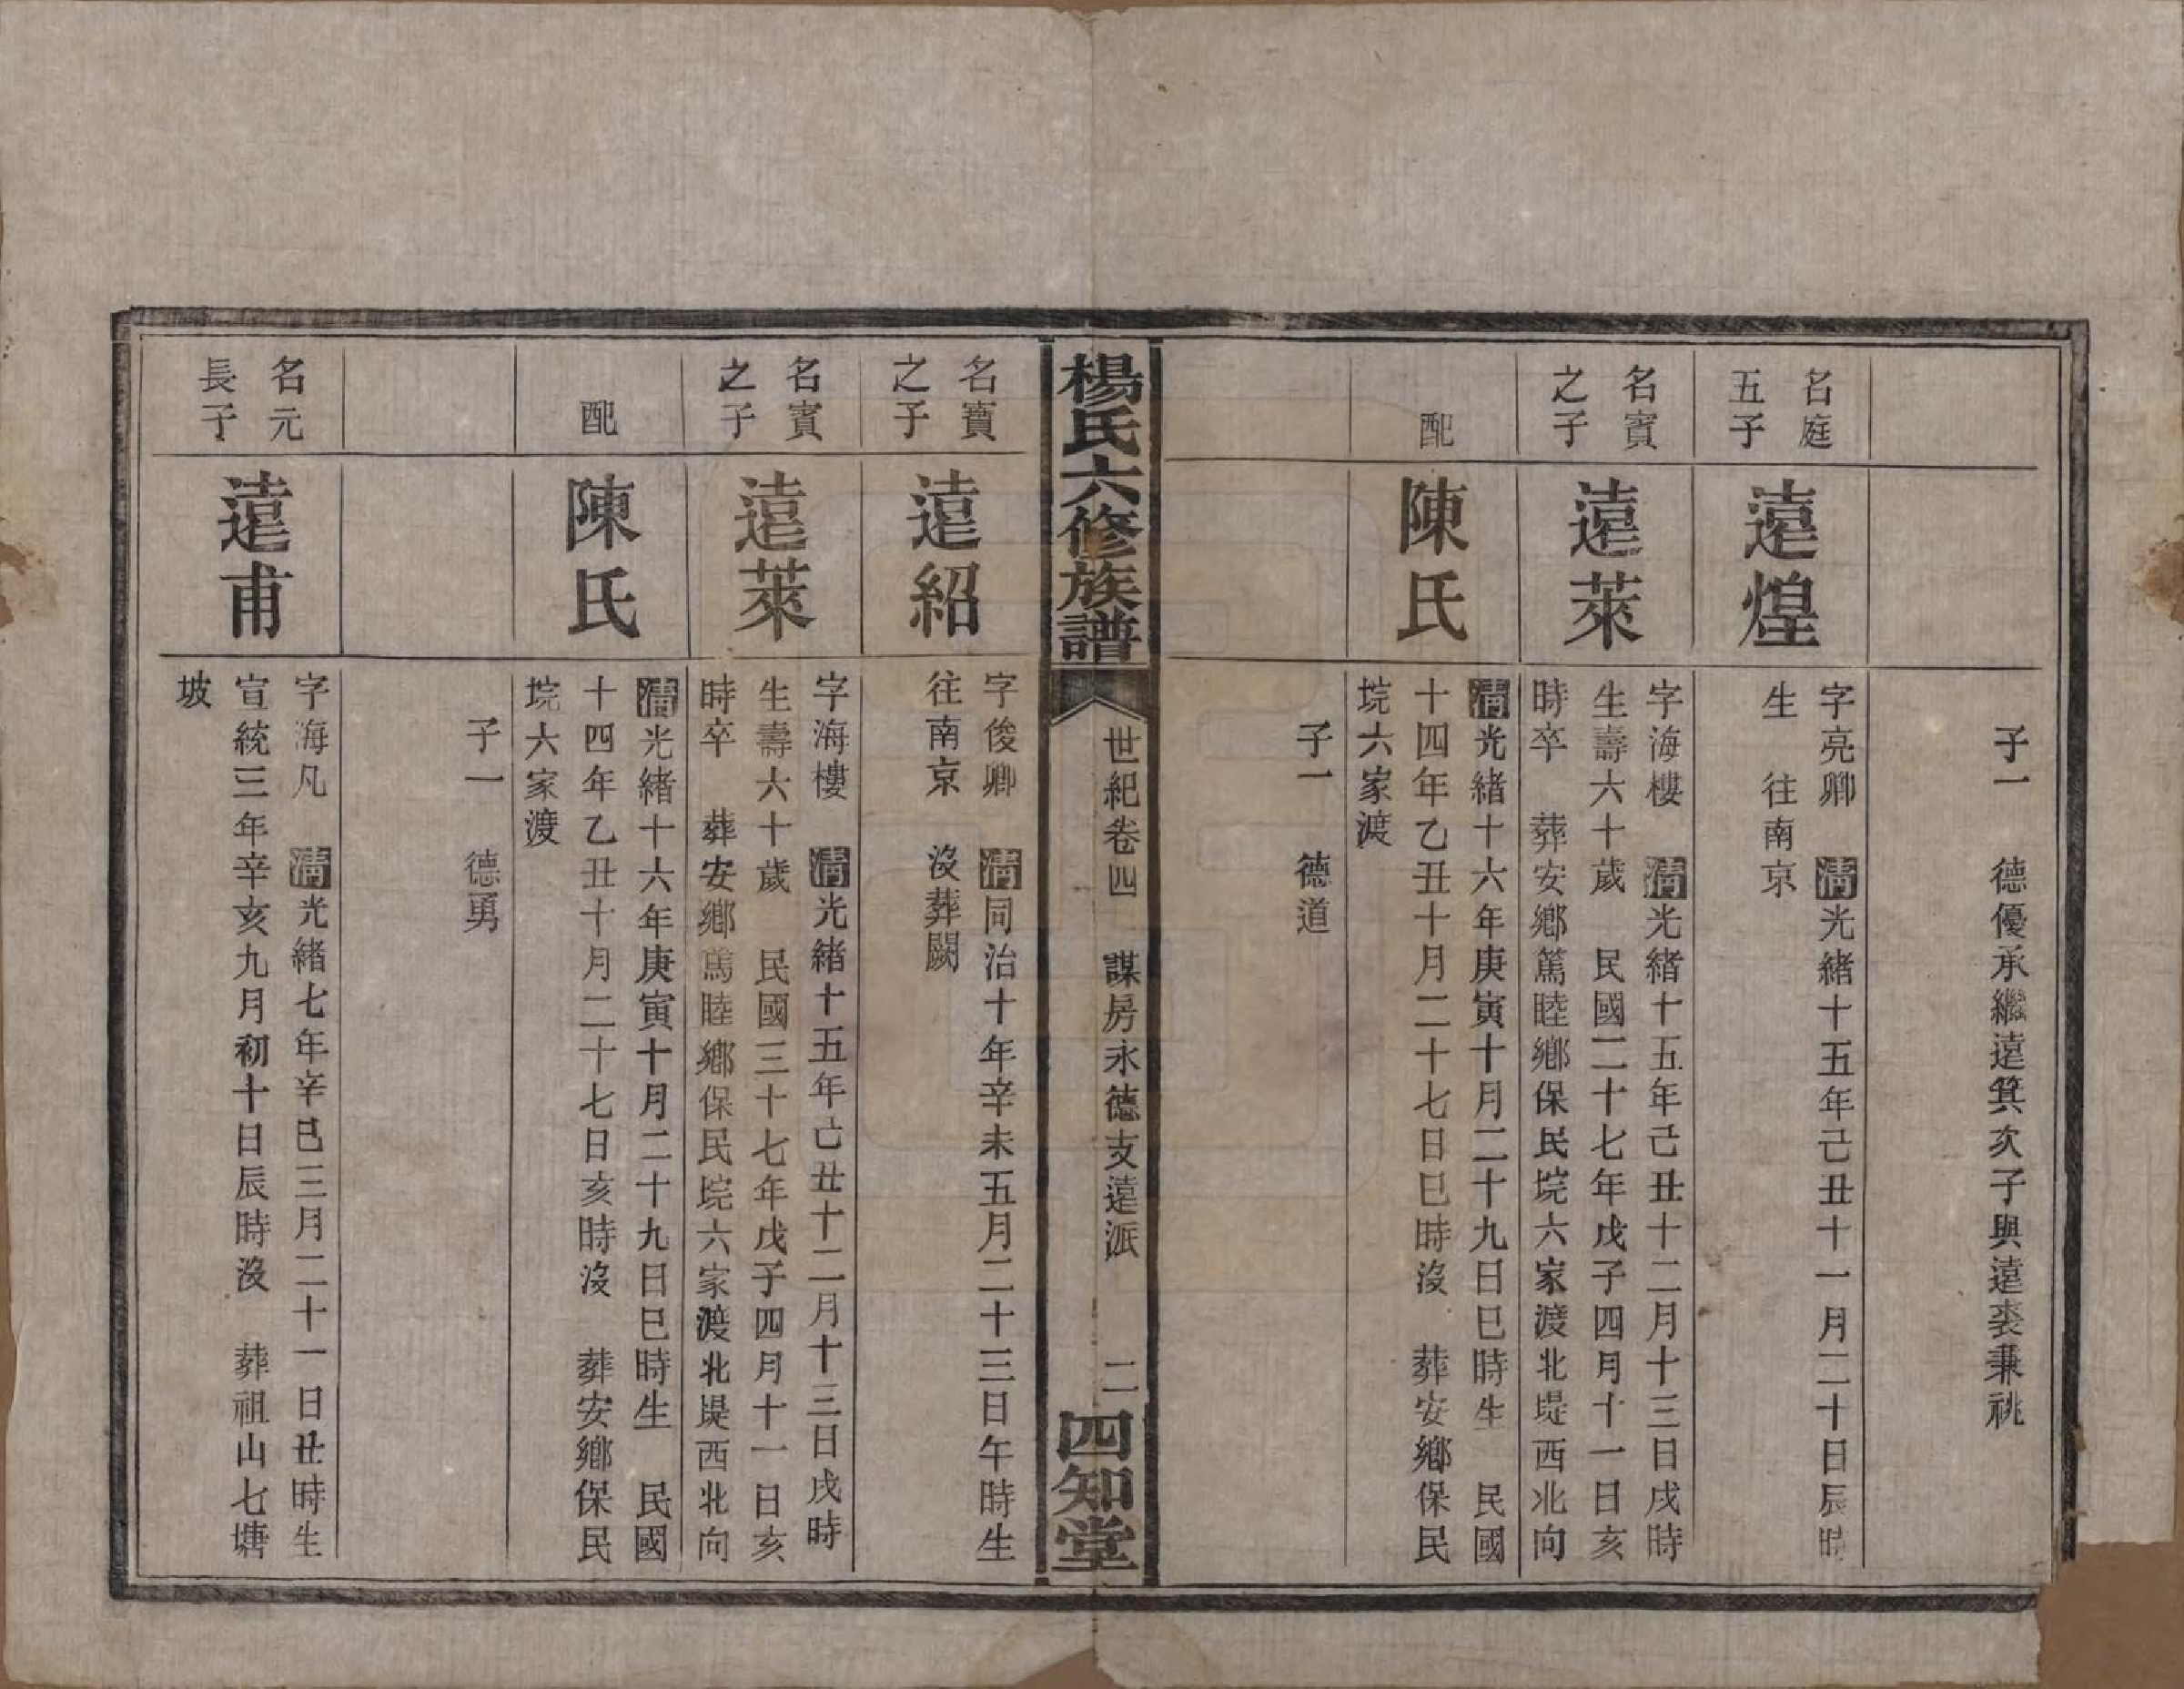 子一　德優承繼遠箕次子與遠裘兼祧
名庭
五子
遠煌
字亮卿　清光緒十五年己丑十一月二十日辰時
生　往南京
名賓
之子
遠萊
字海樓　清光緒十五年己丑十二月十三日戌時
生壽六十歲　民國二十七年戊子四月十一日亥
時卒　葬安鄉篤睦鄉保民垸六家渡北堤西北向
配
陳氏
清光緒十六年庚寅十月二十九日巳時生　民國
十四年乙丑十月二十七日巳時沒　葬安鄉保民
垸六家渡
子一　德道
楊氏六修族譜
世紀卷四　謀房永德支遠派　二
四知堂
名寶
之子
遠紹
字俊卿　清同治十年辛未五月二十三日午時生
往南京　沒葬闕
名賓
之子
遠萊
字海樓　清光緒十五年己丑十二月十三日戌時
生壽六十歲　民國三十七年戊子四月十一日亥
時卒　葬安鄉篤睦鄉保民垸六家渡北堤西北向
配
陳氏
清光緒十六年庚寅十月二十九日巳時生　民國
十四年乙丑十月二十七日亥時沒　葬安鄉保民
垸六家渡
子一　德勇
名元
長子
遠甫
字海凡　清光緒七年辛巳三月二十一日丑時生
宣統三年辛亥九月初十日辰時沒　葬祖山七塘
坡